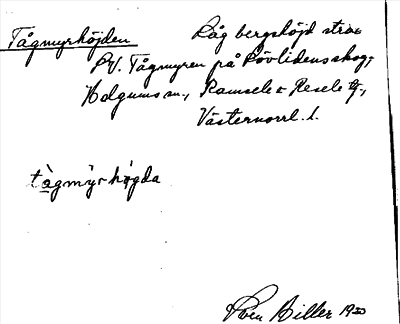 Tågmyrhöjden Låg bergshöjd strax
SV. Tågmyren på Rövlidens skog,
Holgums sn., Ramsele o Resele tg.,
Västernorrl. l.
tàgmỳrhögda
Sven Hiller 1930